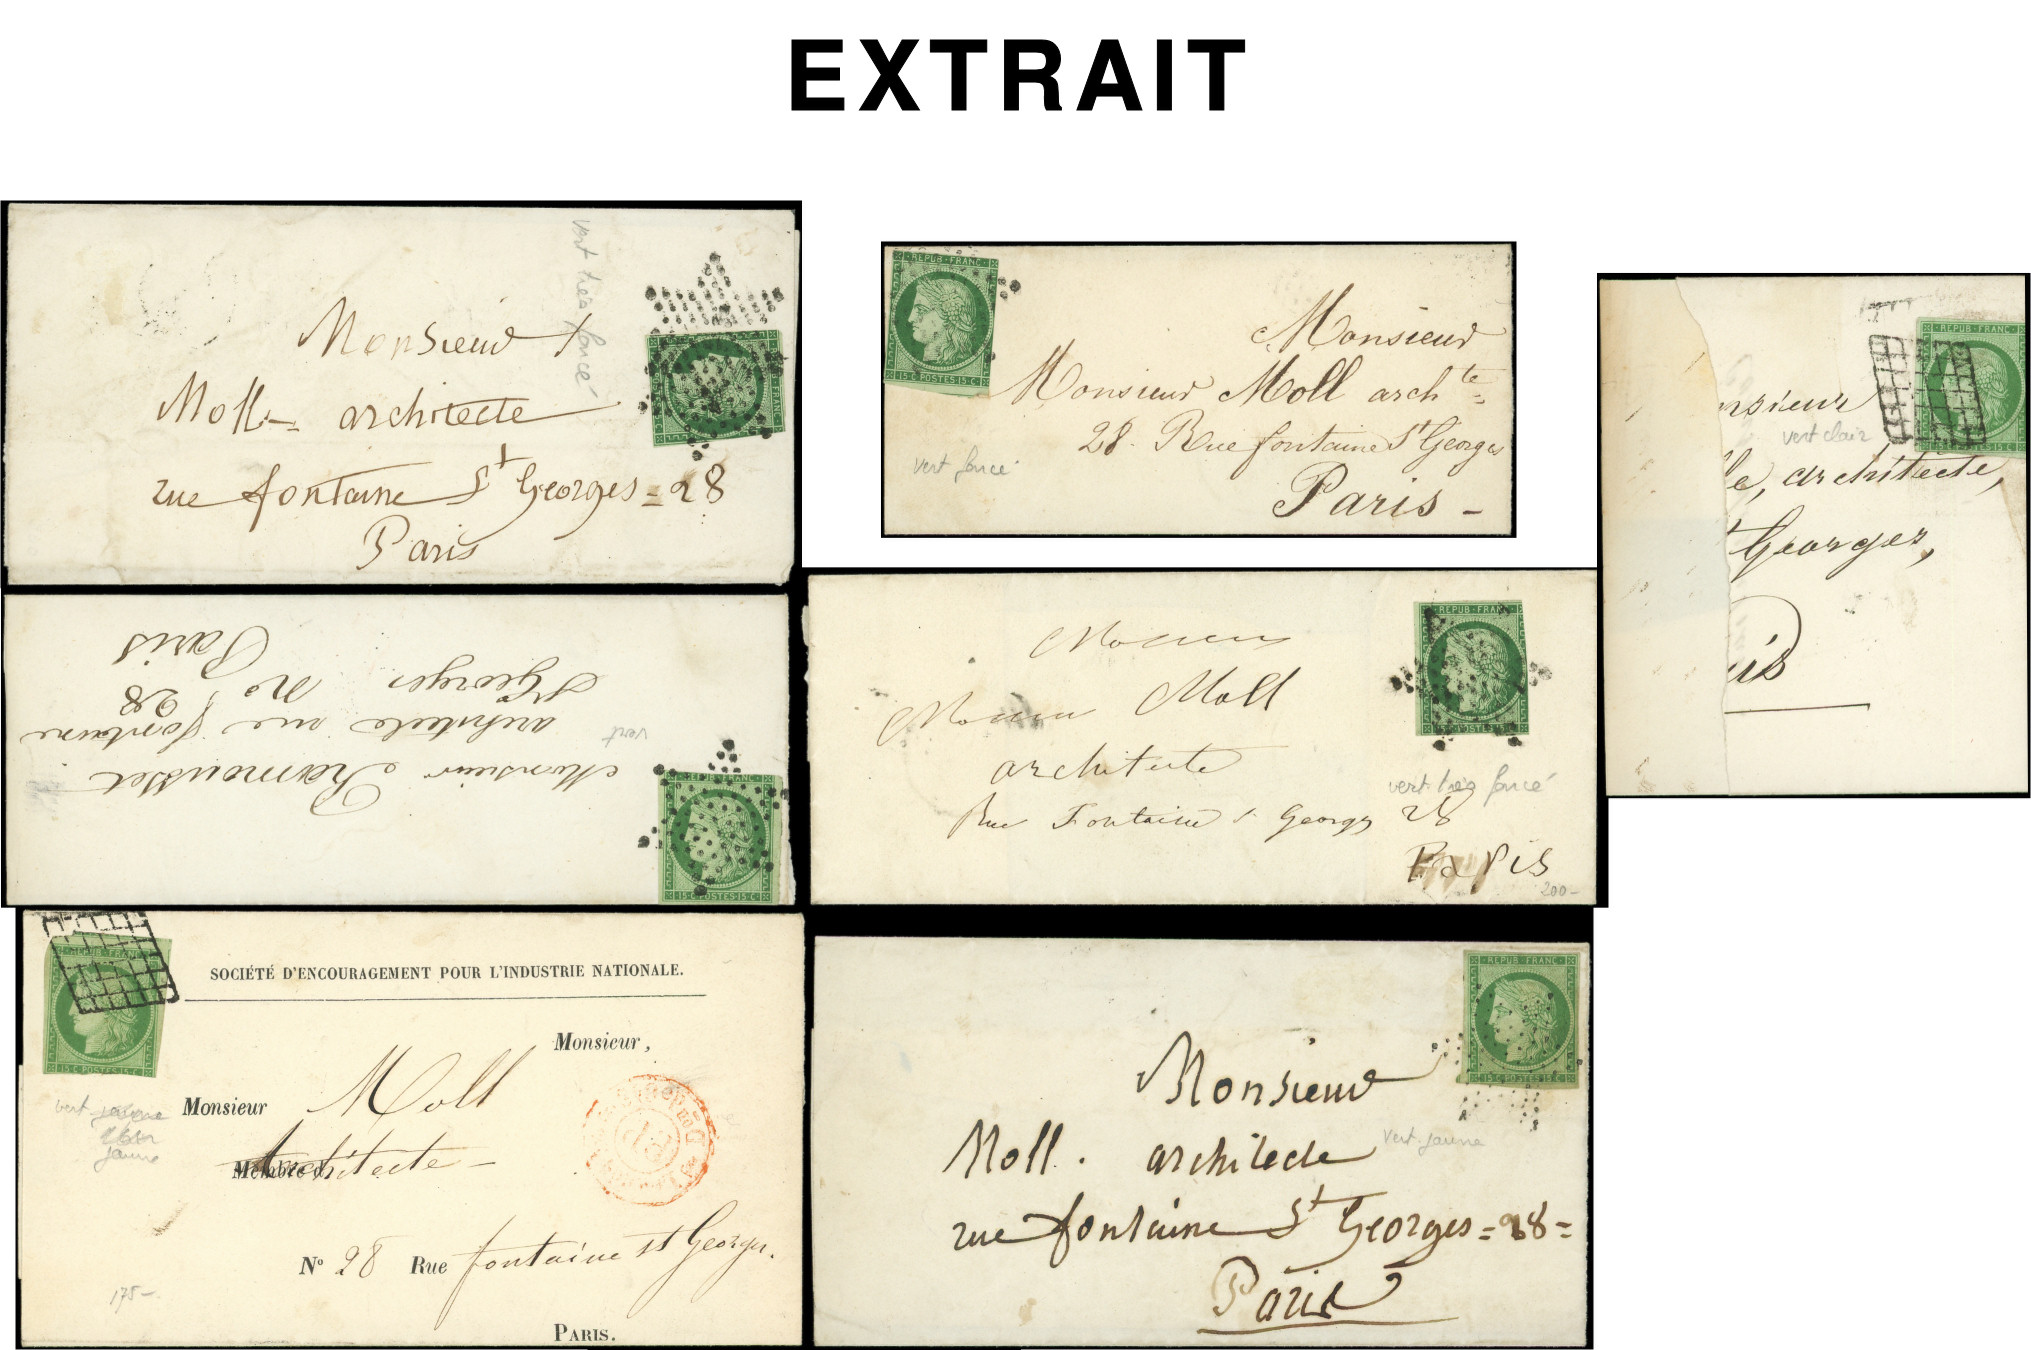 EXTRAIT
vert très foncé
Monsieur
Moll - architecte
rue fontaine St Georges = 28
Paris
REPUB·FRANC
15·C·POSTES·15·C
Monsieur
Monsieur Moll archte
28 Rue fontaine St Georges
Paris -
vert foncé
REPUB·FRANC
nsieur
vert clair
le, architecte,
Georges,
is
REPUB·FRANC
15·C·POSTES·15·C
Monsieur Ramousset
architecte rue fontaine
St Georges no 28
Paris
vert
REPUB·FRANC
Monsieur
Monsieur Moll
architecte
Rue Fontaine St Georges 28
PARIS
vert très foncé
200-
REPUB·FRANC
15·C·POSTES·15·C
SOCIÉTÉ D'ENCOURAGEMENT POUR L'INDUSTRIE NATIONALE.
Monsieur,
Monsieur Moll
Membre d
Architecte -
No 28 Rue fontaine st Georges.
PARIS.
vert jaune
jaune
175-
REPUB·FRANC
15·C·POSTES·15·C
Monsieur
Moll. architecte
rue fontaine St Georges = 28 =
Paris
vert-jaune